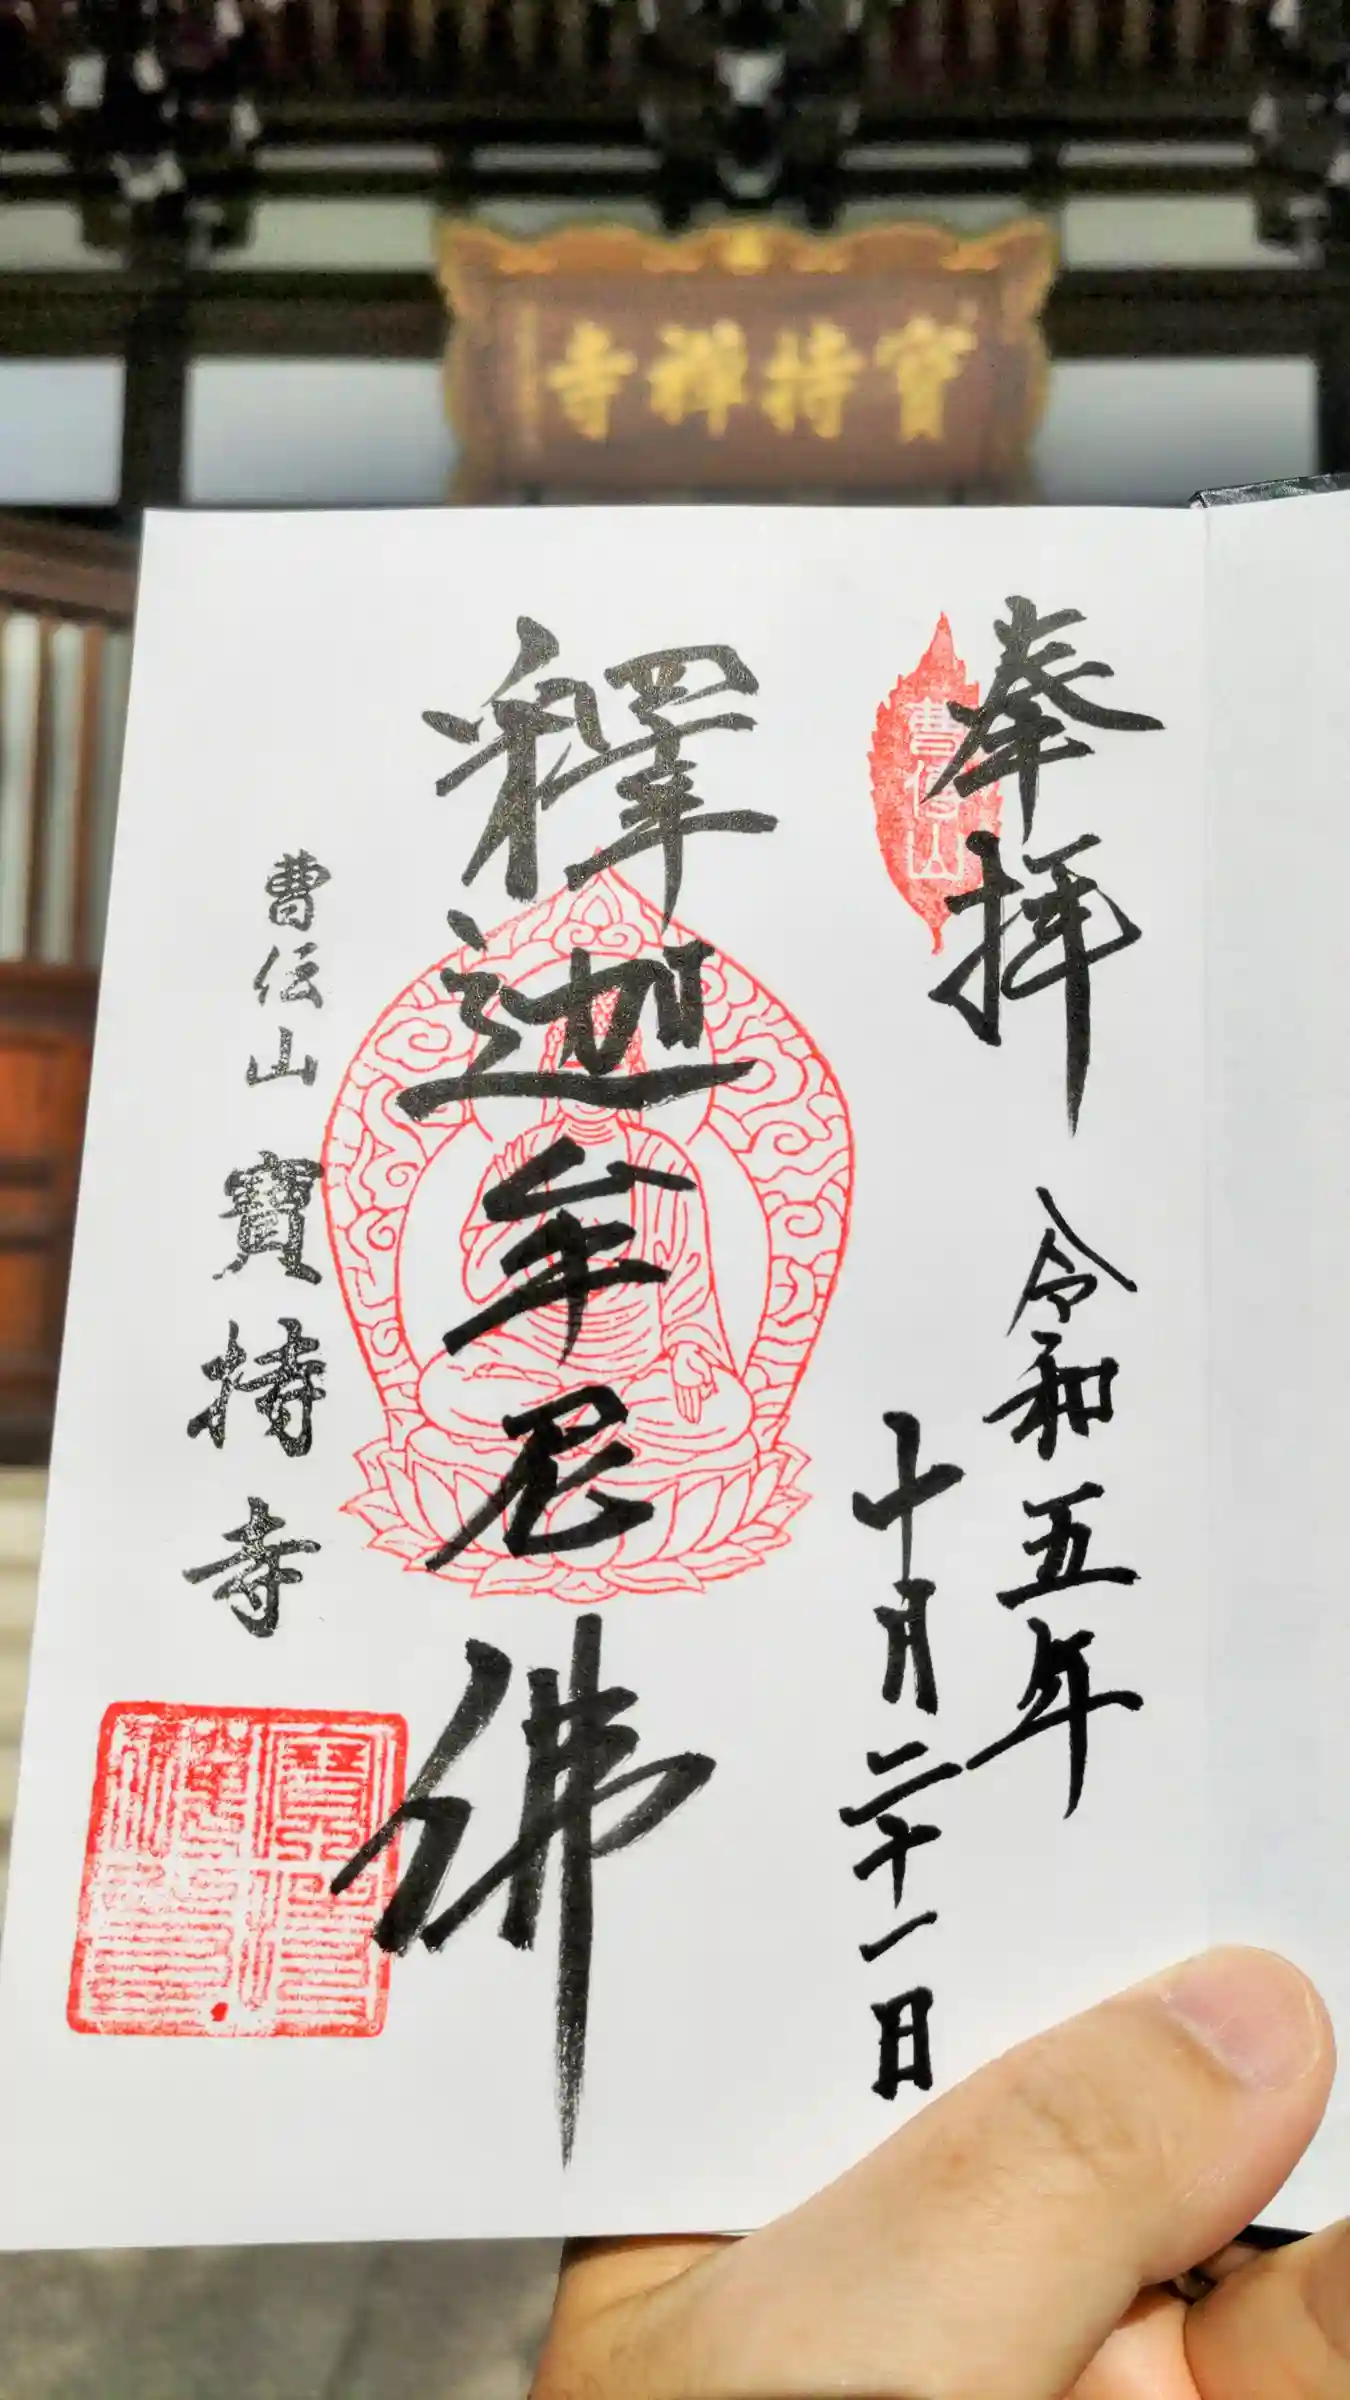 寳持禅寺
奉拝
曹傳山
令和五年
十月二十一日
釋迦牟尼佛
曹伝山 寶持寺